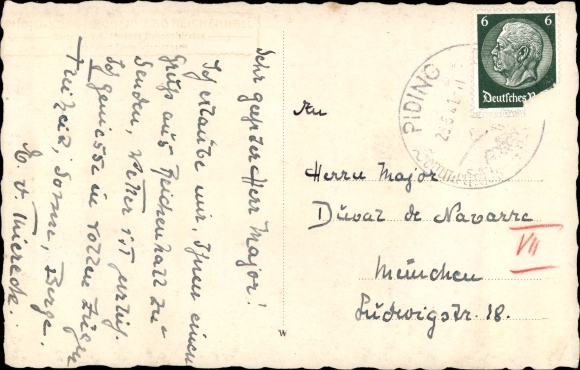 Sehr geehrter Herr Major!
Ich erlaube mir, Ihnen einen
Gruß aus Reichenhall zu
senden, Wetter ist
Ich geniesse in vollen Zügen
Freiheit, Sonne, Berge.
E. v
6 6
Deutsches R
PIDING
An
Herrn Major
Duval de Navarre
VII
München
Ludwigstr. 18.
W